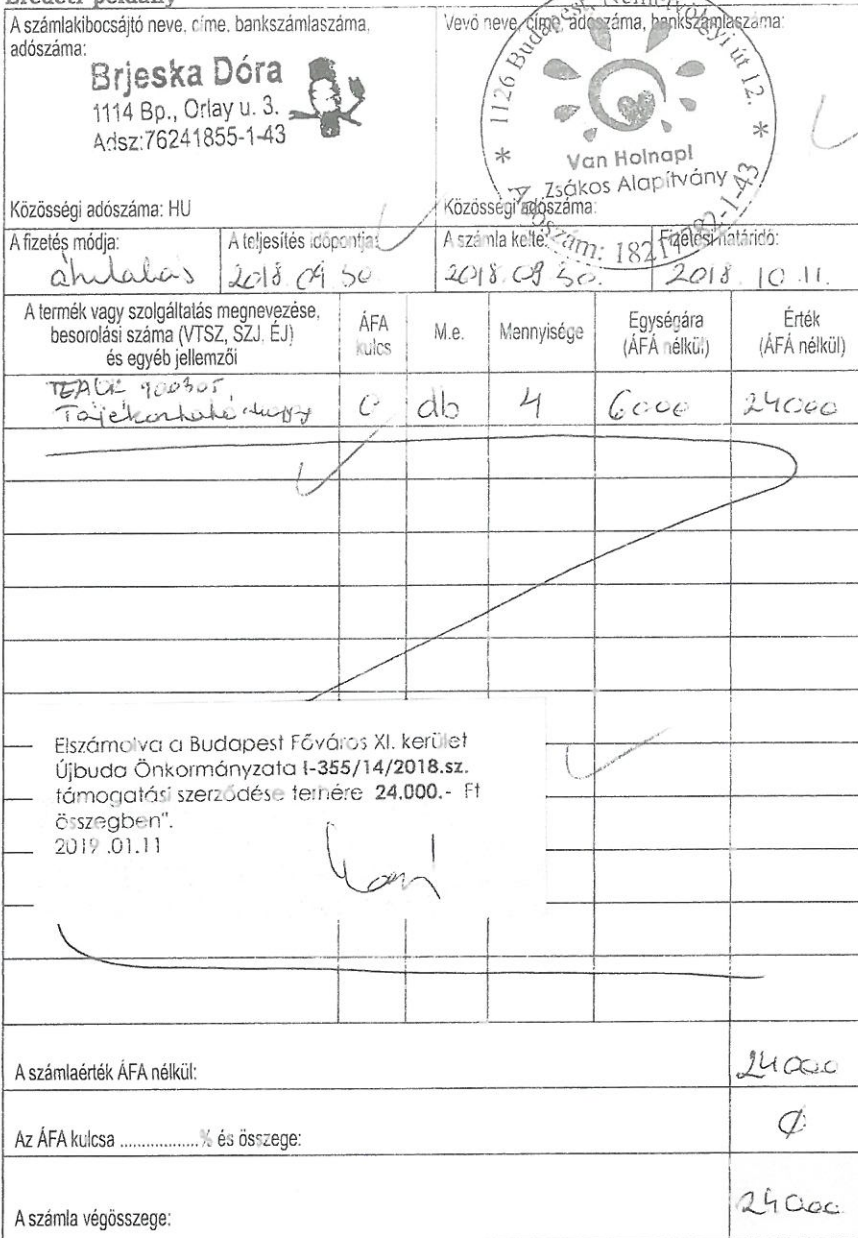 Eredeti példány
A számlakibocsájtó neve, címe, bankszámlaszáma,
adószáma:
Brjeska Dóra
1114 Bp., Orlay u. 3.
Adsz:76241855-1-43
Közösségi adószáma: HU
Vevő neve, címe, adószáma, bankszámlaszáma:
1126 Budapest, Németvölgyi út 12.
Van Holnap!
Zsákos Alapítvány
Közösségi adószáma:
A fizetés módja:
átutalás
A teljesítés időpontja:
2018 09 30
A számla kelte:
2018. 09 30.
Fizetési határidő:
2018 10.11.
A termék vagy szolgáltatás megnevezése,
besorolási száma (VTSZ, SZJ, ÉJ)
és egyéb jellemzői
ÁFA
kulcs
M.e.
Mennyisége
Egységára
(ÁFÁ nélkül)
Érték
(ÁFÁ nélkül)
TEAOR 900305,
0 db 4 6000 24000
Elszámolva a Budapest Főváros XI. kerület
Újbuda Önkormányzata I-355/14/2018.sz.
támogatási szerződése terhére 24.000.- Ft
összegben".
2019 .01.11
A számlaérték ÁFA nélkül:
24000
Az ÁFA kulcsa ..................% és összege:
Ø
A számla végösszege:
24000